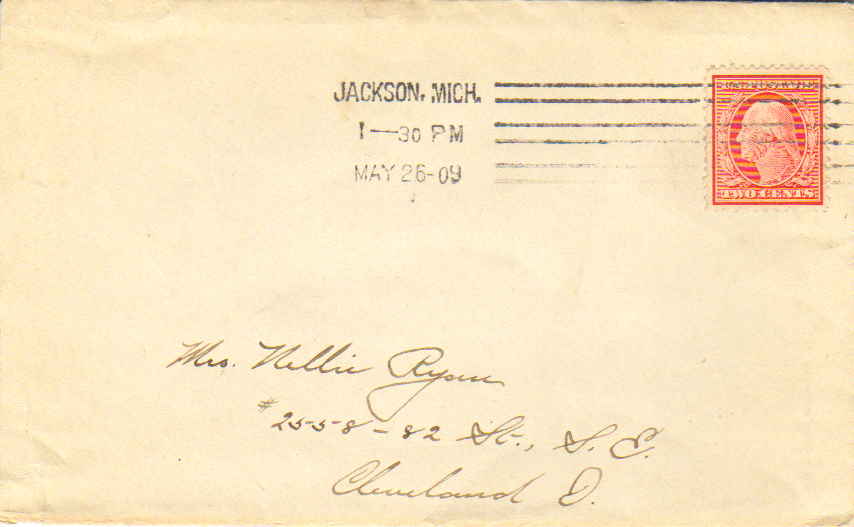 JACKSON, MICH.
1—30 PM
MAY 26-09
TWO CENTS
Mrs. Nellie Rysen
#2558-82 St., S. E.
Cleveland O.